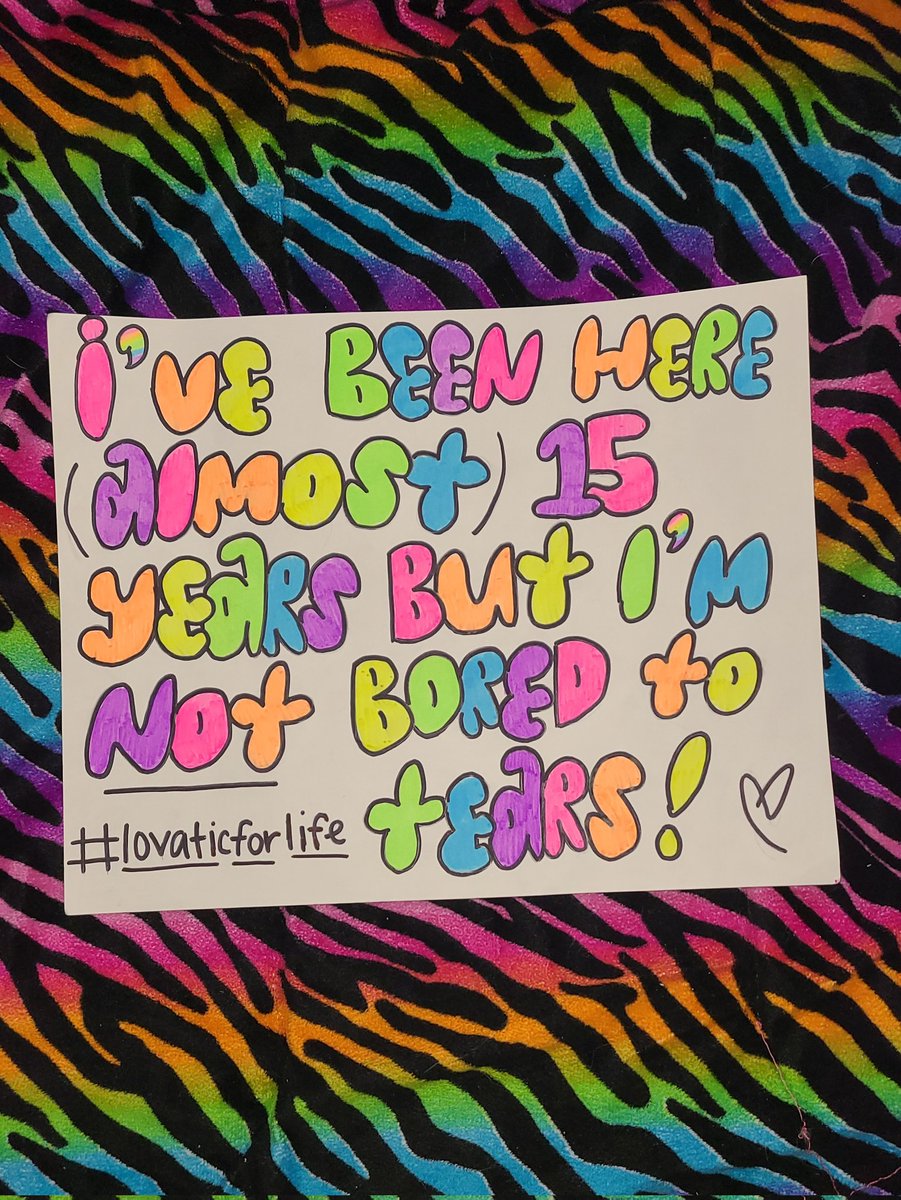 i've BEEN HERE
(almost) 15
YEARS BUT I'M
Not BORED to
tEARS!
#lovaticforlife